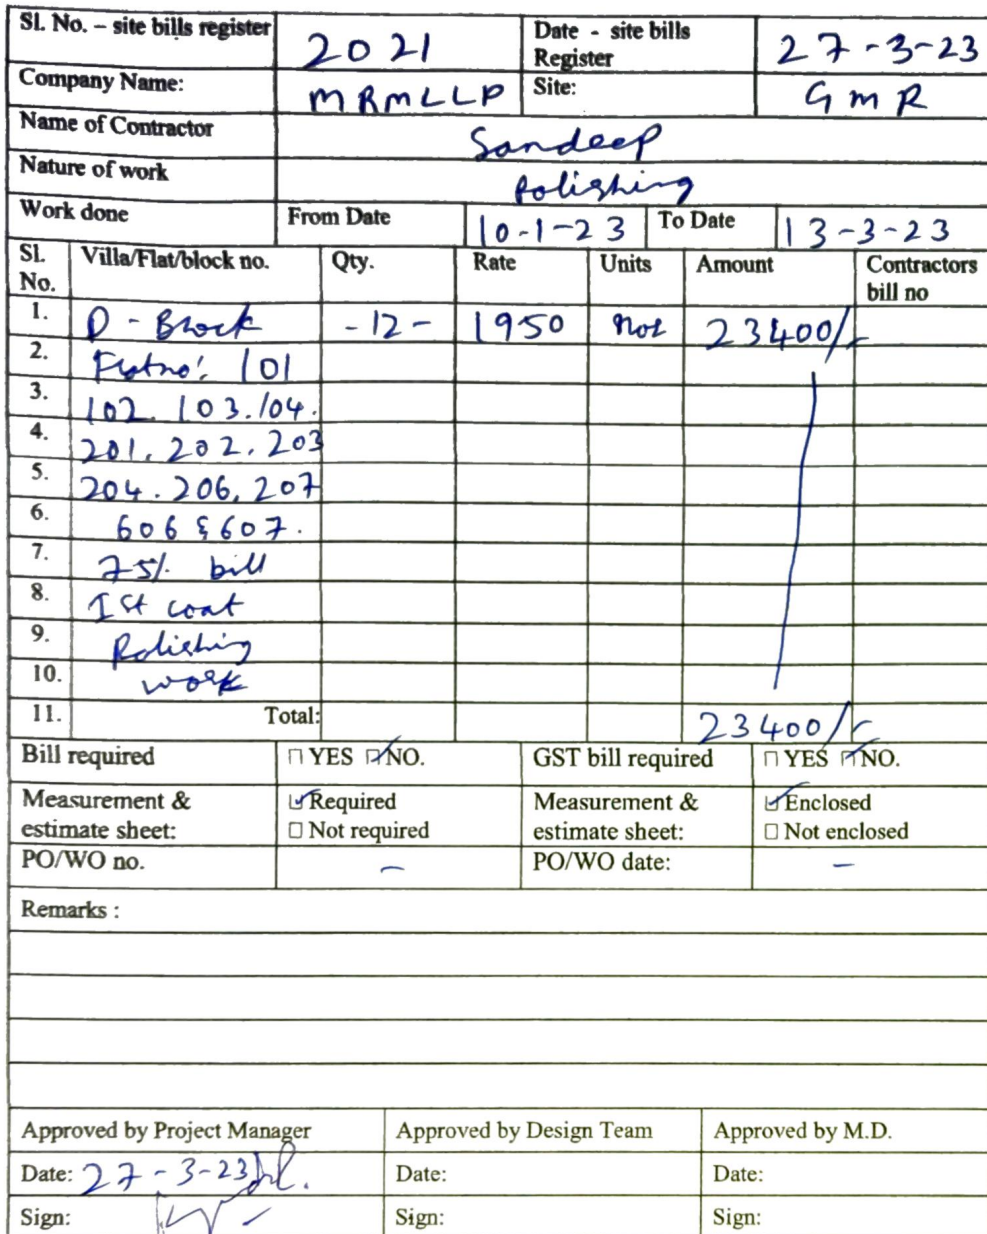 Sl. No. – site bills register 2021 Date - site bills Register 27-3-23
Company Name: MRMLLP Site: GMR
Name of Contractor Sandeep
Nature of work Polishing
Work done From Date 10-1-23 To Date 13-3-23
Sl. No. Villa/Flat/block no. Qty. Rate Units Amount Contractors bill no
1. D - Block -12- 1950 Nos 23400/-
2. Flat no: 101
3. 102. 103. 104.
4. 201, 202, 203
5. 204. 206, 207
6. 606 & 607.
7. 75% bill
8. 1st coat
9. Polishing
10. work
11. Total: 23400/-
Bill required □ YES ☑ NO. GST bill required □ YES ☑ NO.
Measurement & estimate sheet: ☑ Required □ Not required Measurement & estimate sheet: ☑ Enclosed □ Not enclosed
PO/WO no. – PO/WO date: –
Remarks :
Approved by Project Manager Approved by Design Team Approved by M.D.
Date: 27-3-23 Date: Date:
Sign: Sign: Sign: